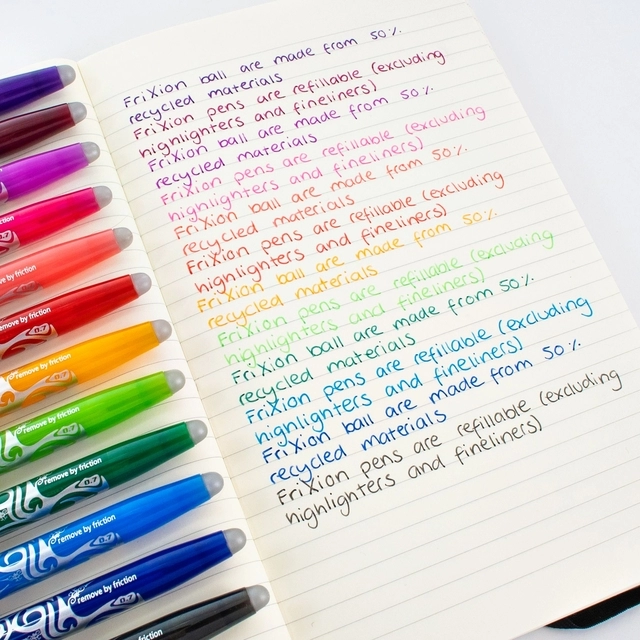 FriXion ball are made from 50%
recycled materials
FriXion pens are refillable (excluding
highlighters and fineliners)
FriXion ball are made from 50%
recycled materials
FriXion pens are refillable (excluding
highlighters and fineliners)
FriXion ball are made from 50%
recycled materials
FriXion pens are refillable (excluding
highlighters and fineliners)
FriXion ball are made from 50%
recycled materials
FriXion pens are refillable (excluding
highlighters and fineliners)
FriXion ball are made from 50%
recycled materials
FriXion pens are refillable (excluding
highlighters and fineliners)
FriXion ball are made from 50%
recycled materials
FriXion pens are refillable (excluding
highlighters and fineliners)
friction
friction
move by friction
remove by friction
0.7
remove by friction
0.7
remove by friction
0.7
remove by friction
0.7
remove by friction
0.7
remove by friction
0.7
remove by friction